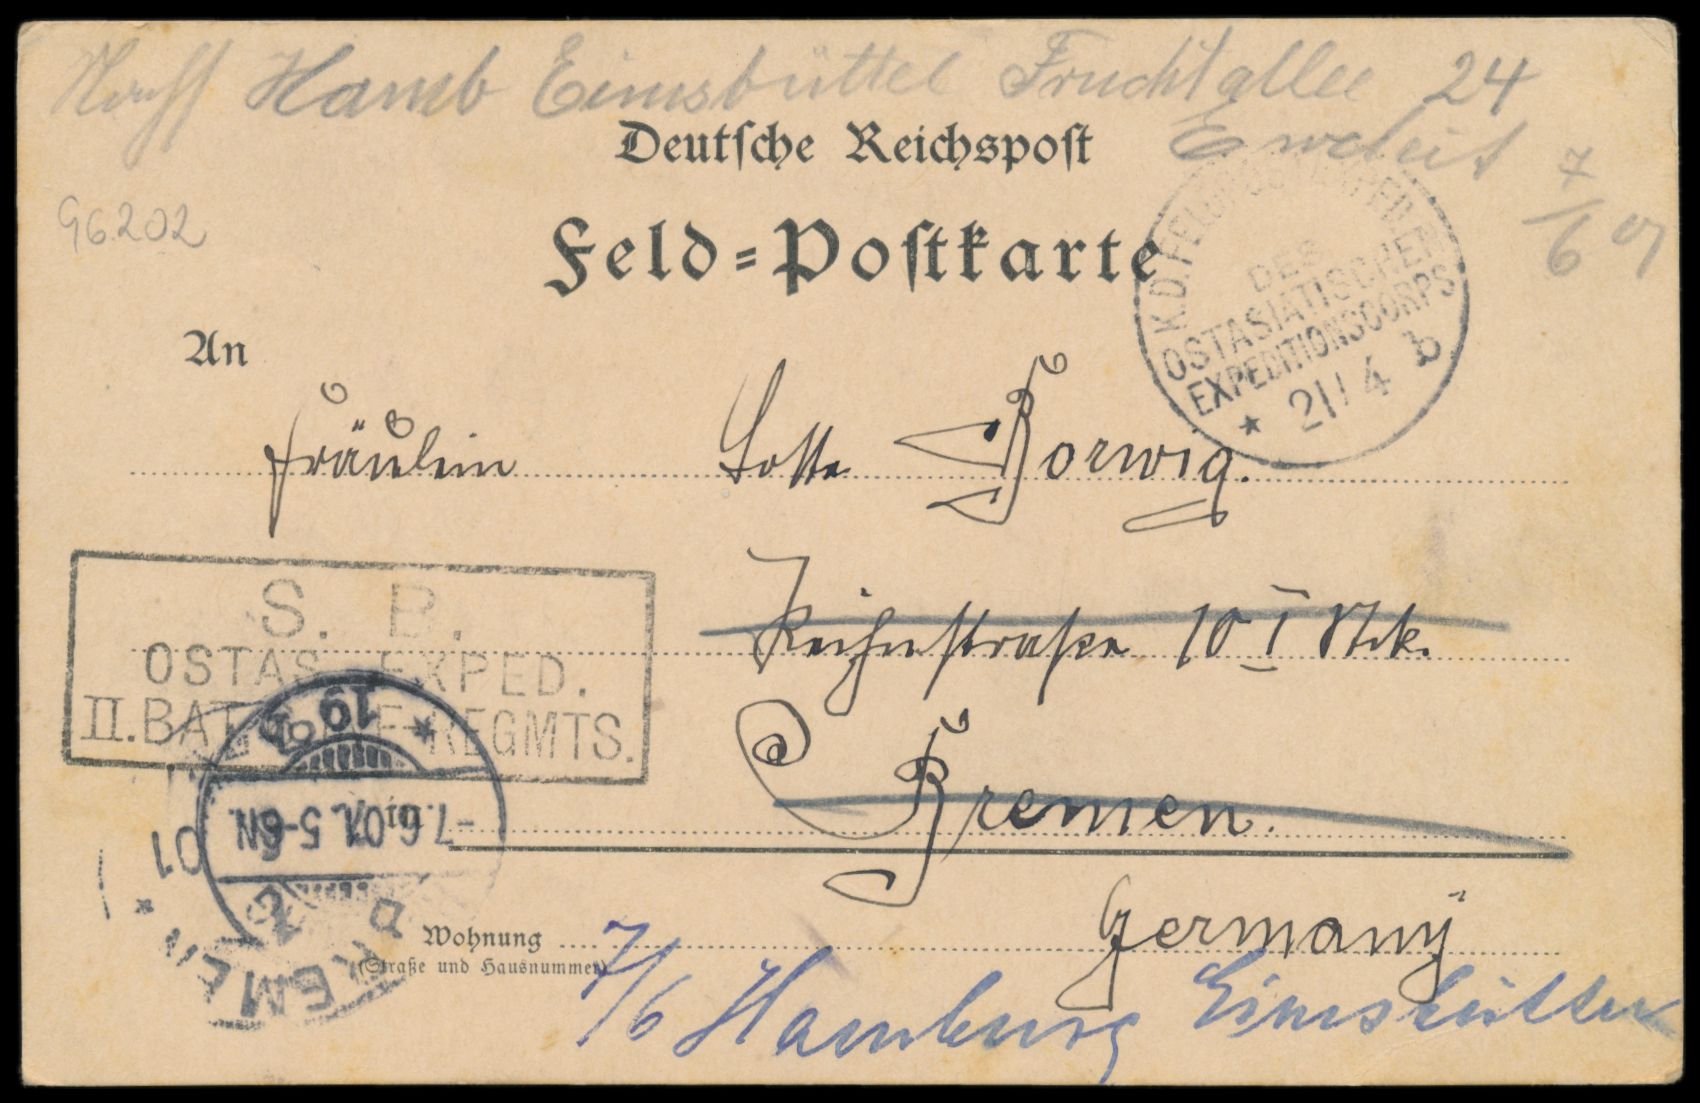 Hamb Eimsbüttel Fruchtallee 24
Deutsche Reichspost
7/6 01
96202
Feld=Postkarte
K.D. FELDPOSTEXPED.
DES
OSTASIATISCHEN
EXPEDITIONSCORPS
* 21/4 b
An
Fräulein Lotte Borwig.
S. B.
OSTAS. EXPED.
II. BAT. REGMTS.
straße 10 I Stck.
19
Bremen.
-7.6.01. 5-6N.
01
Germany
Wohnung
(Straße und Hausnummer)
BREMEN *
7/6 Hamburg Eimsbüttel